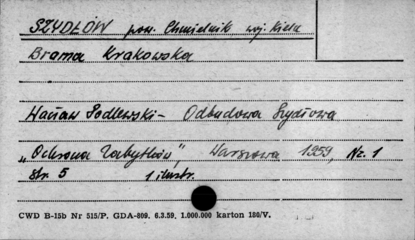 SZYDŁÓW pow. Chmielnik woj. Kielce
Brama Krakowska
Wacław Podlewski - Odbudowa Szydłowa
„Ochrona Zabytków", Warszawa 1959, Nr. 1
str. 5 1 ilustr.
CWD B-15b Nr 515/P. GDA-809. 6.3.59. 1.000.000 karton 186/V.